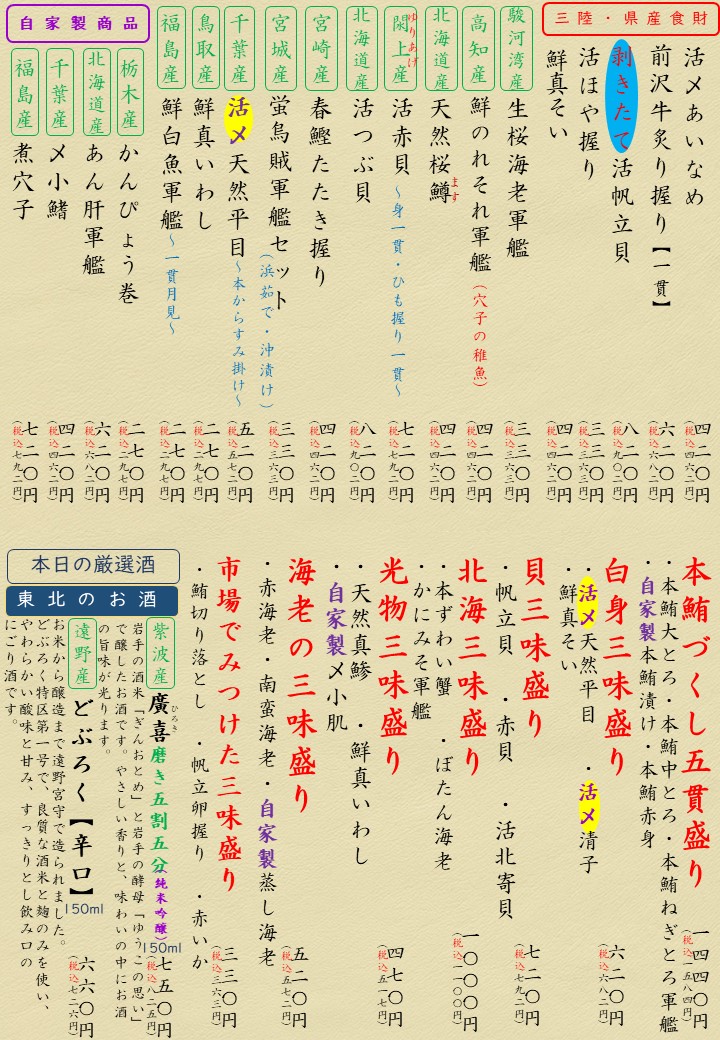 三陸・県産食財
活〆あいなめ
四二〇円
(税込四六二円)
前沢牛炙り握り【一貫】
六二〇円
(税込六八二円)
剥きたて活帆立貝
八二〇円
(税込九〇二円)
活ほや握り
三三〇円
(税込三六三円)
鮮真そい
四二〇円
(税込四六二円)
駿河湾産
生桜海老軍艦
三三〇円
(税込三六三円)
高知産
鮮のれそれ軍艦(穴子の稚魚)
四二〇円
(税込四六二円)
北海道産
天然桜鱒
ます
四二〇円
(税込四六二円)
閖上産
ゆりあげ
活赤貝~身一貫・ひも握り一貫~
七二〇円
(税込七九二円)
北海道産
活つぶ貝
八二〇円
(税込九〇二円)
宮崎産
春鰹たたき握り
四二〇円
(税込四六二円)
宮城産
蛍烏賊軍艦セット
(浜茹で・沖漬け)
三三〇円
(税込三六三円)
千葉産
活〆天然平目~本からすみ掛け~
五二〇円
(税込五七二円)
鳥取産
鮮真いわし
二七〇円
(税込二九七円)
福島産
鮮白魚軍艦~一貫月見~
二七〇円
(税込二九七円)
自家製商品
栃木産
かんぴょう巻
二七〇円
(税込二九七円)
北海道産
あん肝軍艦
六二〇円
(税込六八二円)
千葉産
〆小鰭
四二〇円
(税込四六二円)
福島産
煮穴子
七二〇円
(税込七九二円)
本鮪づくし五貫盛り
一四四〇円
(税込一五八四円)
・本鮪大とろ・本鮪中とろ・本鮪ねぎとろ軍艦
・自家製本鮪漬け・本鮪赤身
白身三味盛り
六二〇円
(税込六八二円)
・活〆天然平目 ・活〆清子
・鮮真そい
貝三味盛り
七二〇円
(税込七九二円)
・帆立貝 ・赤貝 ・活北寄貝
北海三味盛り
一〇〇〇円
(税込一一〇〇円)
・本ずわい蟹 ・ぼたん海老
・かにみそ軍艦
光物三味盛り
四七〇円
(税込五一七円)
・天然真鯵 ・鮮真いわし
・自家製〆小肌
海老の三味盛り
五二〇円
(税込五七二円)
・赤海老・南蛮海老・自家製蒸し海老
市場でみつけた三味盛り
三三〇円
(税込三六三円)
・鮪切り落とし ・帆立卵握り ・赤いか
本日の厳選酒
東北のお酒
紫波産
廣喜磨き五割五分(純米吟醸)
ひろき
150ml
七五〇円
(税込八二五円)
岩手の酒米「ぎんおとめ」と岩手の酵母「ゆうこの思い」
で醸したお酒です。やさしい香りと、味わいの中にお酒
の旨味が光ります。
遠野産
どぶろく【辛口】
150ml
六六〇円
(税込七二六円)
お米から醸造まで遠野宮守で造られました。
どぶろく特区第一号で、良質な酒米と麹のみを使い、
やわらかい酸味と甘み、すっきりとし飲み口の
にごり酒です。